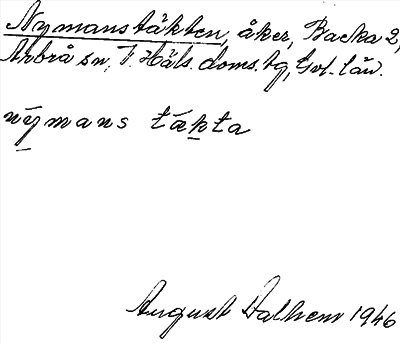 Nymanstäkten, åker, Backa 2,
Arbrå sn, V. Häls. doms. tg, Gvl. län.
nymans täkta
August Dalhem 1946